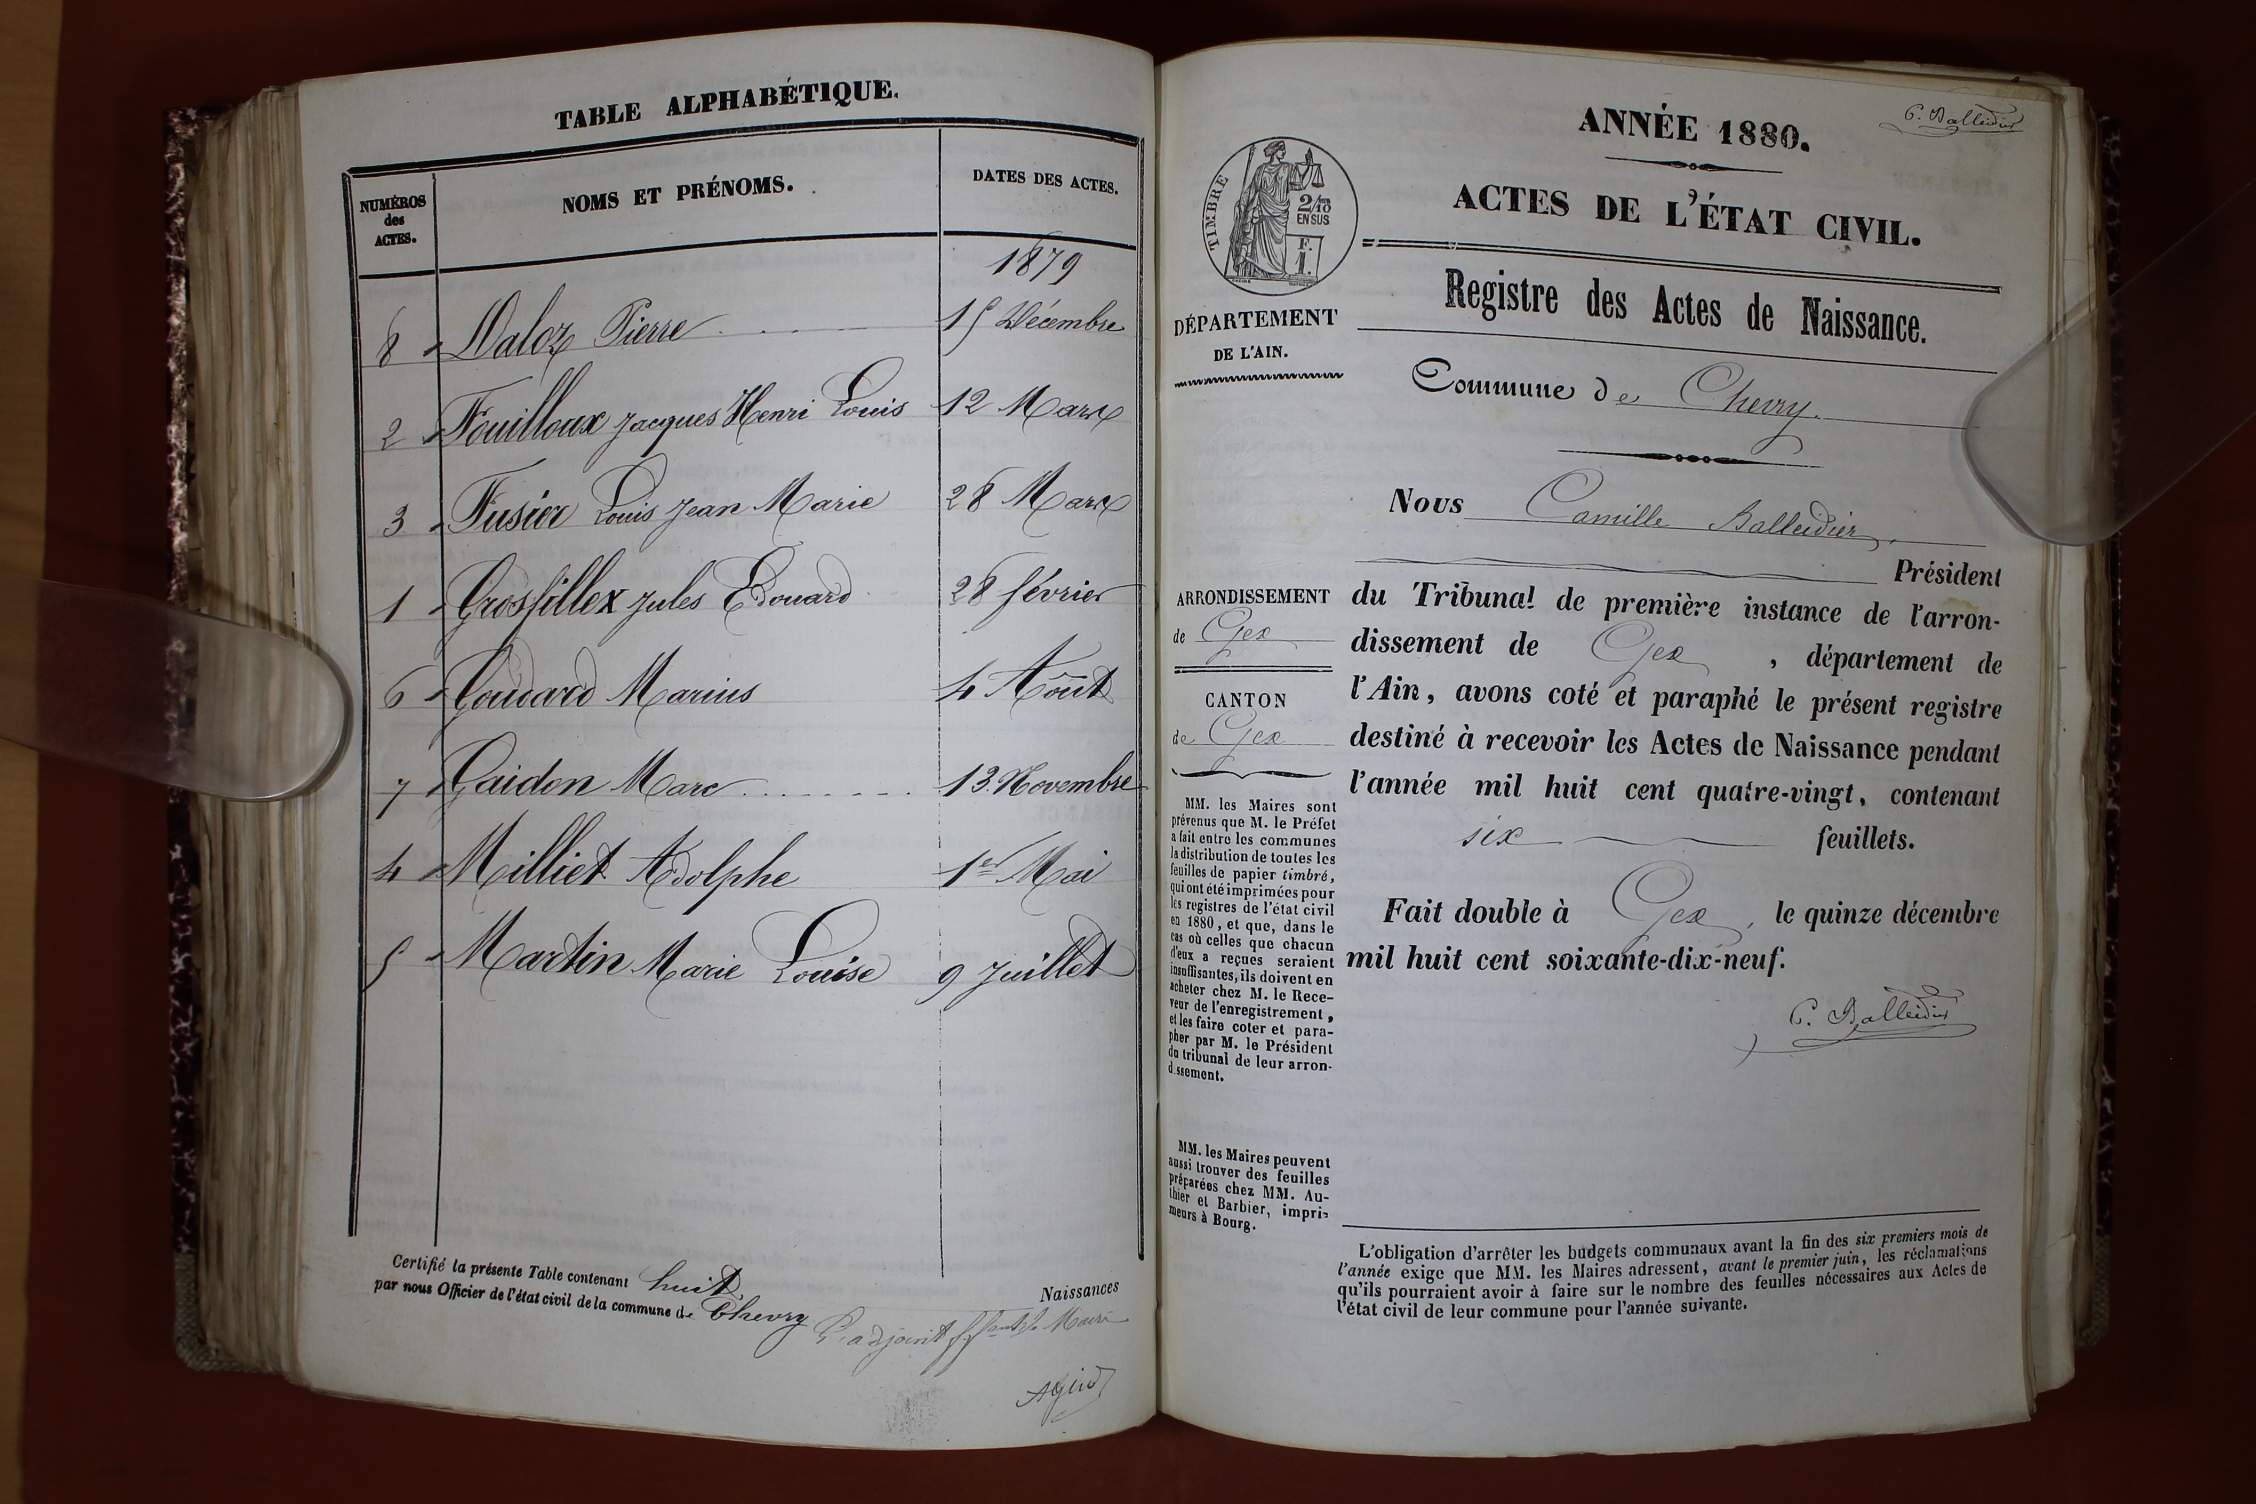 TABLE ALPHABÉTIQUE.
NUMÉROS des ACTES. NOMS ET PRÉNOMS. DATES DES ACTES.
1879
8 Daloz Pierre 15 Décembre
2 Fouilloux Jacques Henri Louis 12 Mars
3 Fusier Louis Jean Marie 28 Mars
1 Grosfillex Jules Edouard 28 février
6 Goudard Marius 4 Août
7 Gaidon Marc 13 Novembre
4 Milliet Adolphe 1er Mai
5 Martin Marie Louise 9 Juillet
Certifié la présente Table contenant huit Naissances
par nous Officier de l'état civil de la commune de Chevry
L'adjoint
C. Balleidier
ANNÉE 1880.
ACTES DE L'ÉTAT CIVIL.
TIMBRE
2/10
EN SUS
F.
1.
Registre des Actes de Naissance.
DÉPARTEMENT
DE L'AIN.
Commune de Chevry.
Nous Camille Balleidier,
Président
du Tribunal de première instance de l'arron-
dissement de Gex, département de
l'Ain, avons coté et paraphé le présent registre
destiné à recevoir les Actes de Naissance pendant
l'année mil huit cent quatre-vingt, contenant
six feuillets.
Fait double à Gex, le quinze décembre
mil huit cent soixante-dix-neuf.
C. Balleidier
ARRONDISSEMENT
de Gex
CANTON
de Gex
MM. les Maires sont
prévenus que M. le Préfet
a fait entre les communes
la distribution de toutes les
feuilles de papier timbré,
qui ont été imprimées pour
les registres de l'état civil
en 1880, et que, dans le
cas où celles que chacun
d'eux a reçues seraient
insuffisantes, ils doivent en
acheter chez M. le Rece-
veur de l'enregistrement,
et les faire coter et para-
pher par M. le Président
du tribunal de leur arron-
dissement.
MM. les Maires peuvent
aussi trouver des feuilles
préparées chez MM. Au-
thier et Barbier, impri-
meurs à Bourg.
L'obligation d'arrêter les budgets communaux avant la fin des six premiers mois de
l'année exige que MM. les Maires adressent, avant le premier juin, les réclamations
qu'ils pourraient avoir à faire sur le nombre des feuilles nécessaires aux Actes de
l'état civil de leur commune pour l'année suivante.